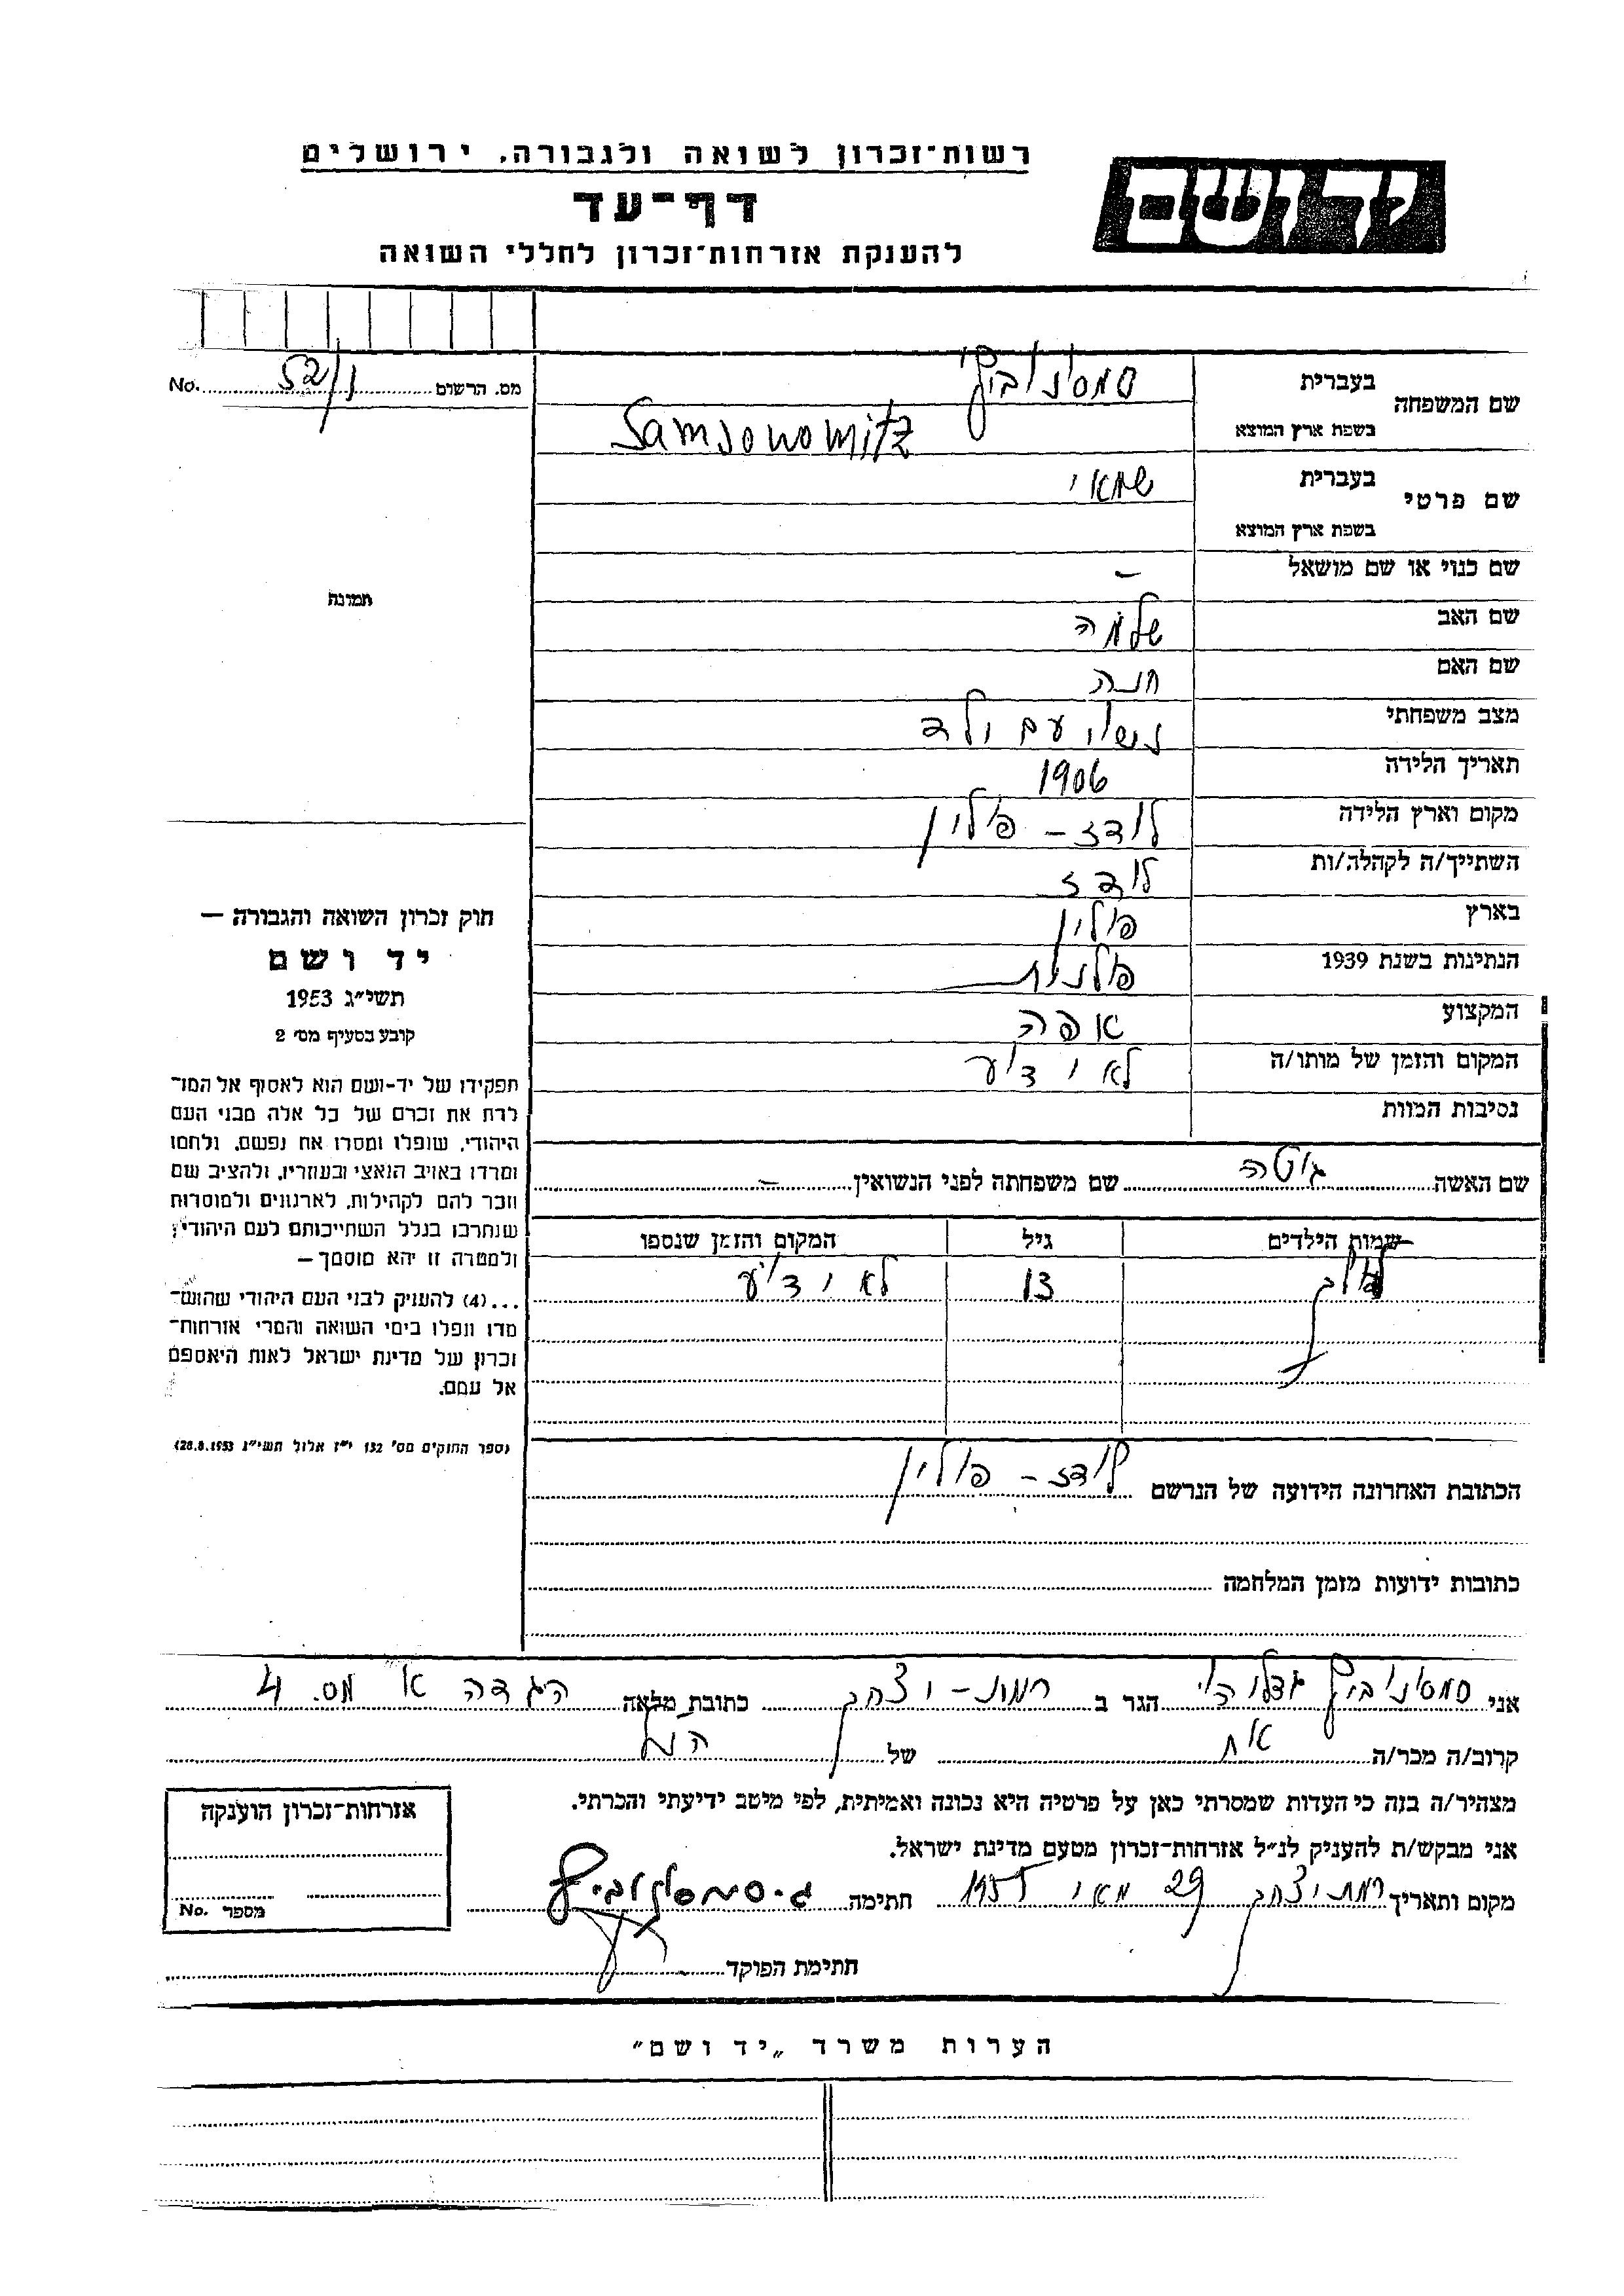 רשות־זכרון לשואה ולגבורה, ירושלים
יד ושם
דף־עד
להענקת אזרחות־זכרון לחללי השואה
No. 52/1 מס. הרשום
שם המשפחה
בעברית סמסונוביץ
בשפת ארץ המוצא Samsonowitz
שם פרטי
בעברית שמאי
בשפת ארץ המוצא
שם כנוי או שם מושאל –
תמונה
שם האב שלמה
שם האם חנה
מצב משפחתי נשוי עם ולד
תאריך הלידה 1906
מקום וארץ הלידה לודז – פולין
השתייך/ה לקהלה/ות לודז
בארץ פולין
הנתינות בשנת 1939 פולנית
המקצוע אפה
המקום והזמן של מותו/ה לא ידוע
נסיבות המוות
חוק זכרון השואה והגבורה —
יד ושם
תשי״ג 1953
קובע בסעיף מס׳ 2
תפקידו של יד-ושם הוא לאסוף אל המו־
לדת את זכרם של כל אלה מבני העם
היהודי, שנפלו ומסרו את נפשם, נלחמו
ומרדו באויב הנאצי ובעוזריו, ולהציב שם
וזכר להם לקהילות, לארגונים ולמוסדות
שנחרבו בגלל השתייכותם לעם היהודי;
ולמטרה זו יהא מוסמך —
...(4) להעניק לבני העם היהודי שהוש־
מדו ונפלו בימי השואה והמרי אזרחות־
זכרון של מדינת ישראל לאות היאספם
אל עמם.
(ספר החוקים מס׳ 132 י״ז אלול תשי״ג 28.8.1953)
שם האשה גוטה שם משפחתה לפני הנשואין –
שמות הילדים גיל המקום והזמן שנספו
13 לא ידוע
הכתובת האחרונה הידועה של הנרשם לודז – פולין
כתובות ידועות מזמן המלחמה
אני סמסונוביץ הגר ב רמת-יצחק כתובת מלאה הגדה א מס. 4
קרוב/ה מכר/ה אח של הנ״ל
מצהיר/ה בזה כי העדות שמסרתי כאן על פרטיה היא נכונה ואמיתית, לפי מיטב ידיעתי והכרתי.
אני מבקש/ת להעניק לנ״ל אזרחות־זכרון מטעם מדינת ישראל.
מקום ותאריך רמת יצחק 29 מאי 1955 חתימה ג. סמסונוביץ
חתימת הפוקד
אזרחות־זכרון הוענקה
No. מספר
הערות משרד „יד ושם״